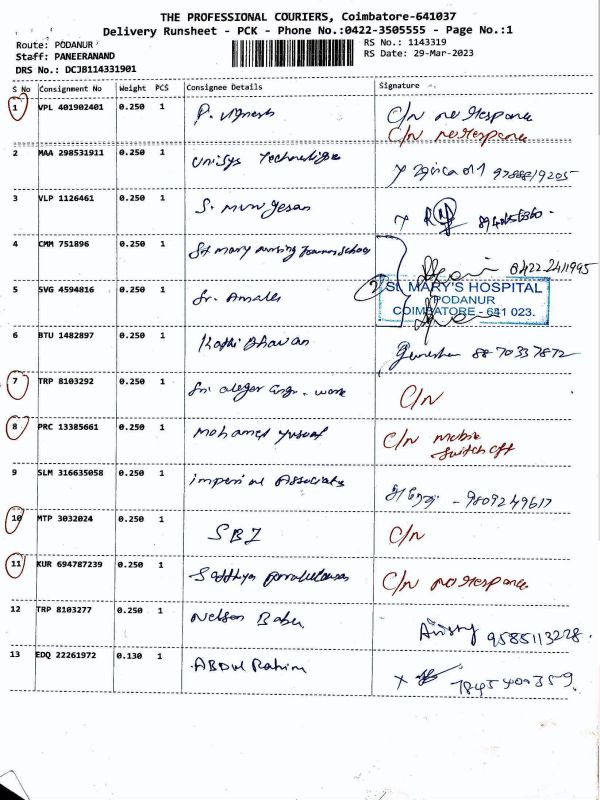 THE PROFESSIONAL COURIERS, Coimbatore-641037
Delivery Runsheet - PCK - Phone No.:0422-3505555 - Page No.:1
Route: PODANUR
RS No.: 1143319
Staff: PANEERANAND
RS Date: 29-Mar-2023
DRS No.: DCJB114331901
S No Consignment No Weight PCS Consignee Details Signature
1 VPL 401902401 0.250 1 P. Vignesh C/N no response
C/N no response
2 MAA 298531911 0.250 1 Unisys Technologies 9788819205
3 VLP 1126461 0.250 1 S. Murugesan
4 CMM 751896 0.250 1 St mary nursing School 0422-2411995
5 SVG 4594816 0.250 1 Sr. Amala 2 ST. MARY'S HOSPITAL
PODANUR
COIMBATORE - 641 023.
6 BTU 1482897 0.250 1 Kathi Bhavan Ganesh 8870337872
7 TRP 8103292 0.250 1 Sri engr. work C/N
8 PRC 13385661 0.250 1 Mohamed Yusuf C/N mobile
Switch off
9 SLM 316635058 0.250 1 imperial Associates - 9809249617
10 MTP 3032024 0.250 1 SBI C/N
11 KUR 694787239 0.250 1 Sathya C/N no response
12 TRP 8103277 0.250 1 Nelson Babu 9585113228.
13 EDQ 22261972 0.130 1 ABDUl Rahim X 7845409359.